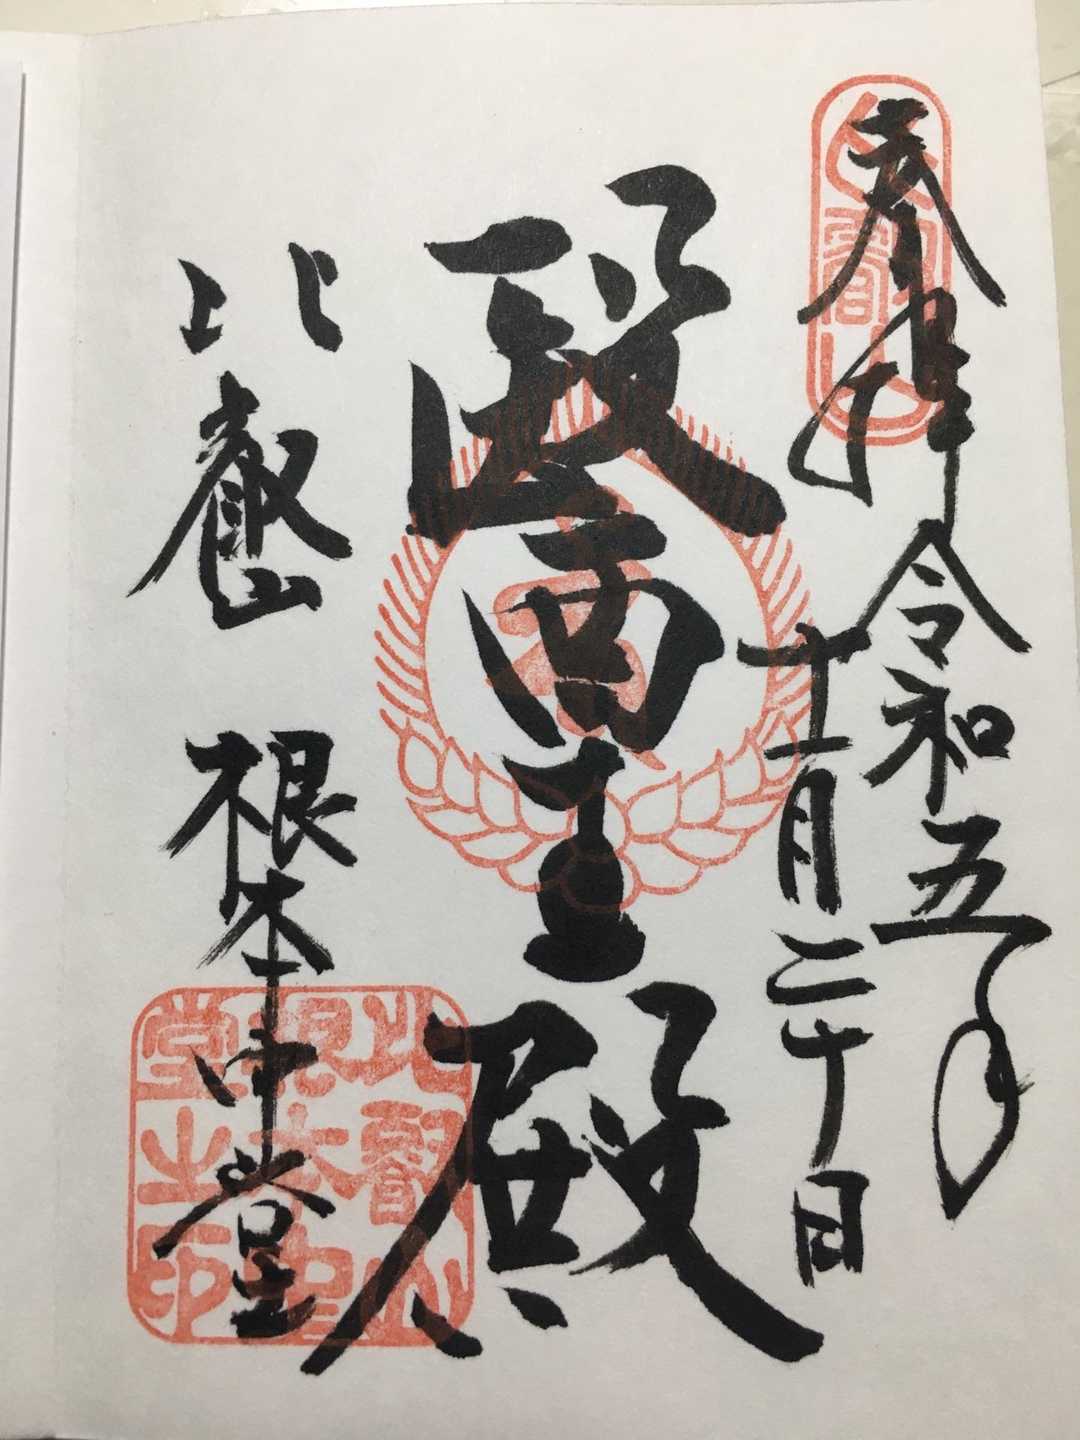 奉拝 令和五年
十一月二十日
醫王殿
比叡山 根本中堂
比叡山
比叡山
根本中
堂之印